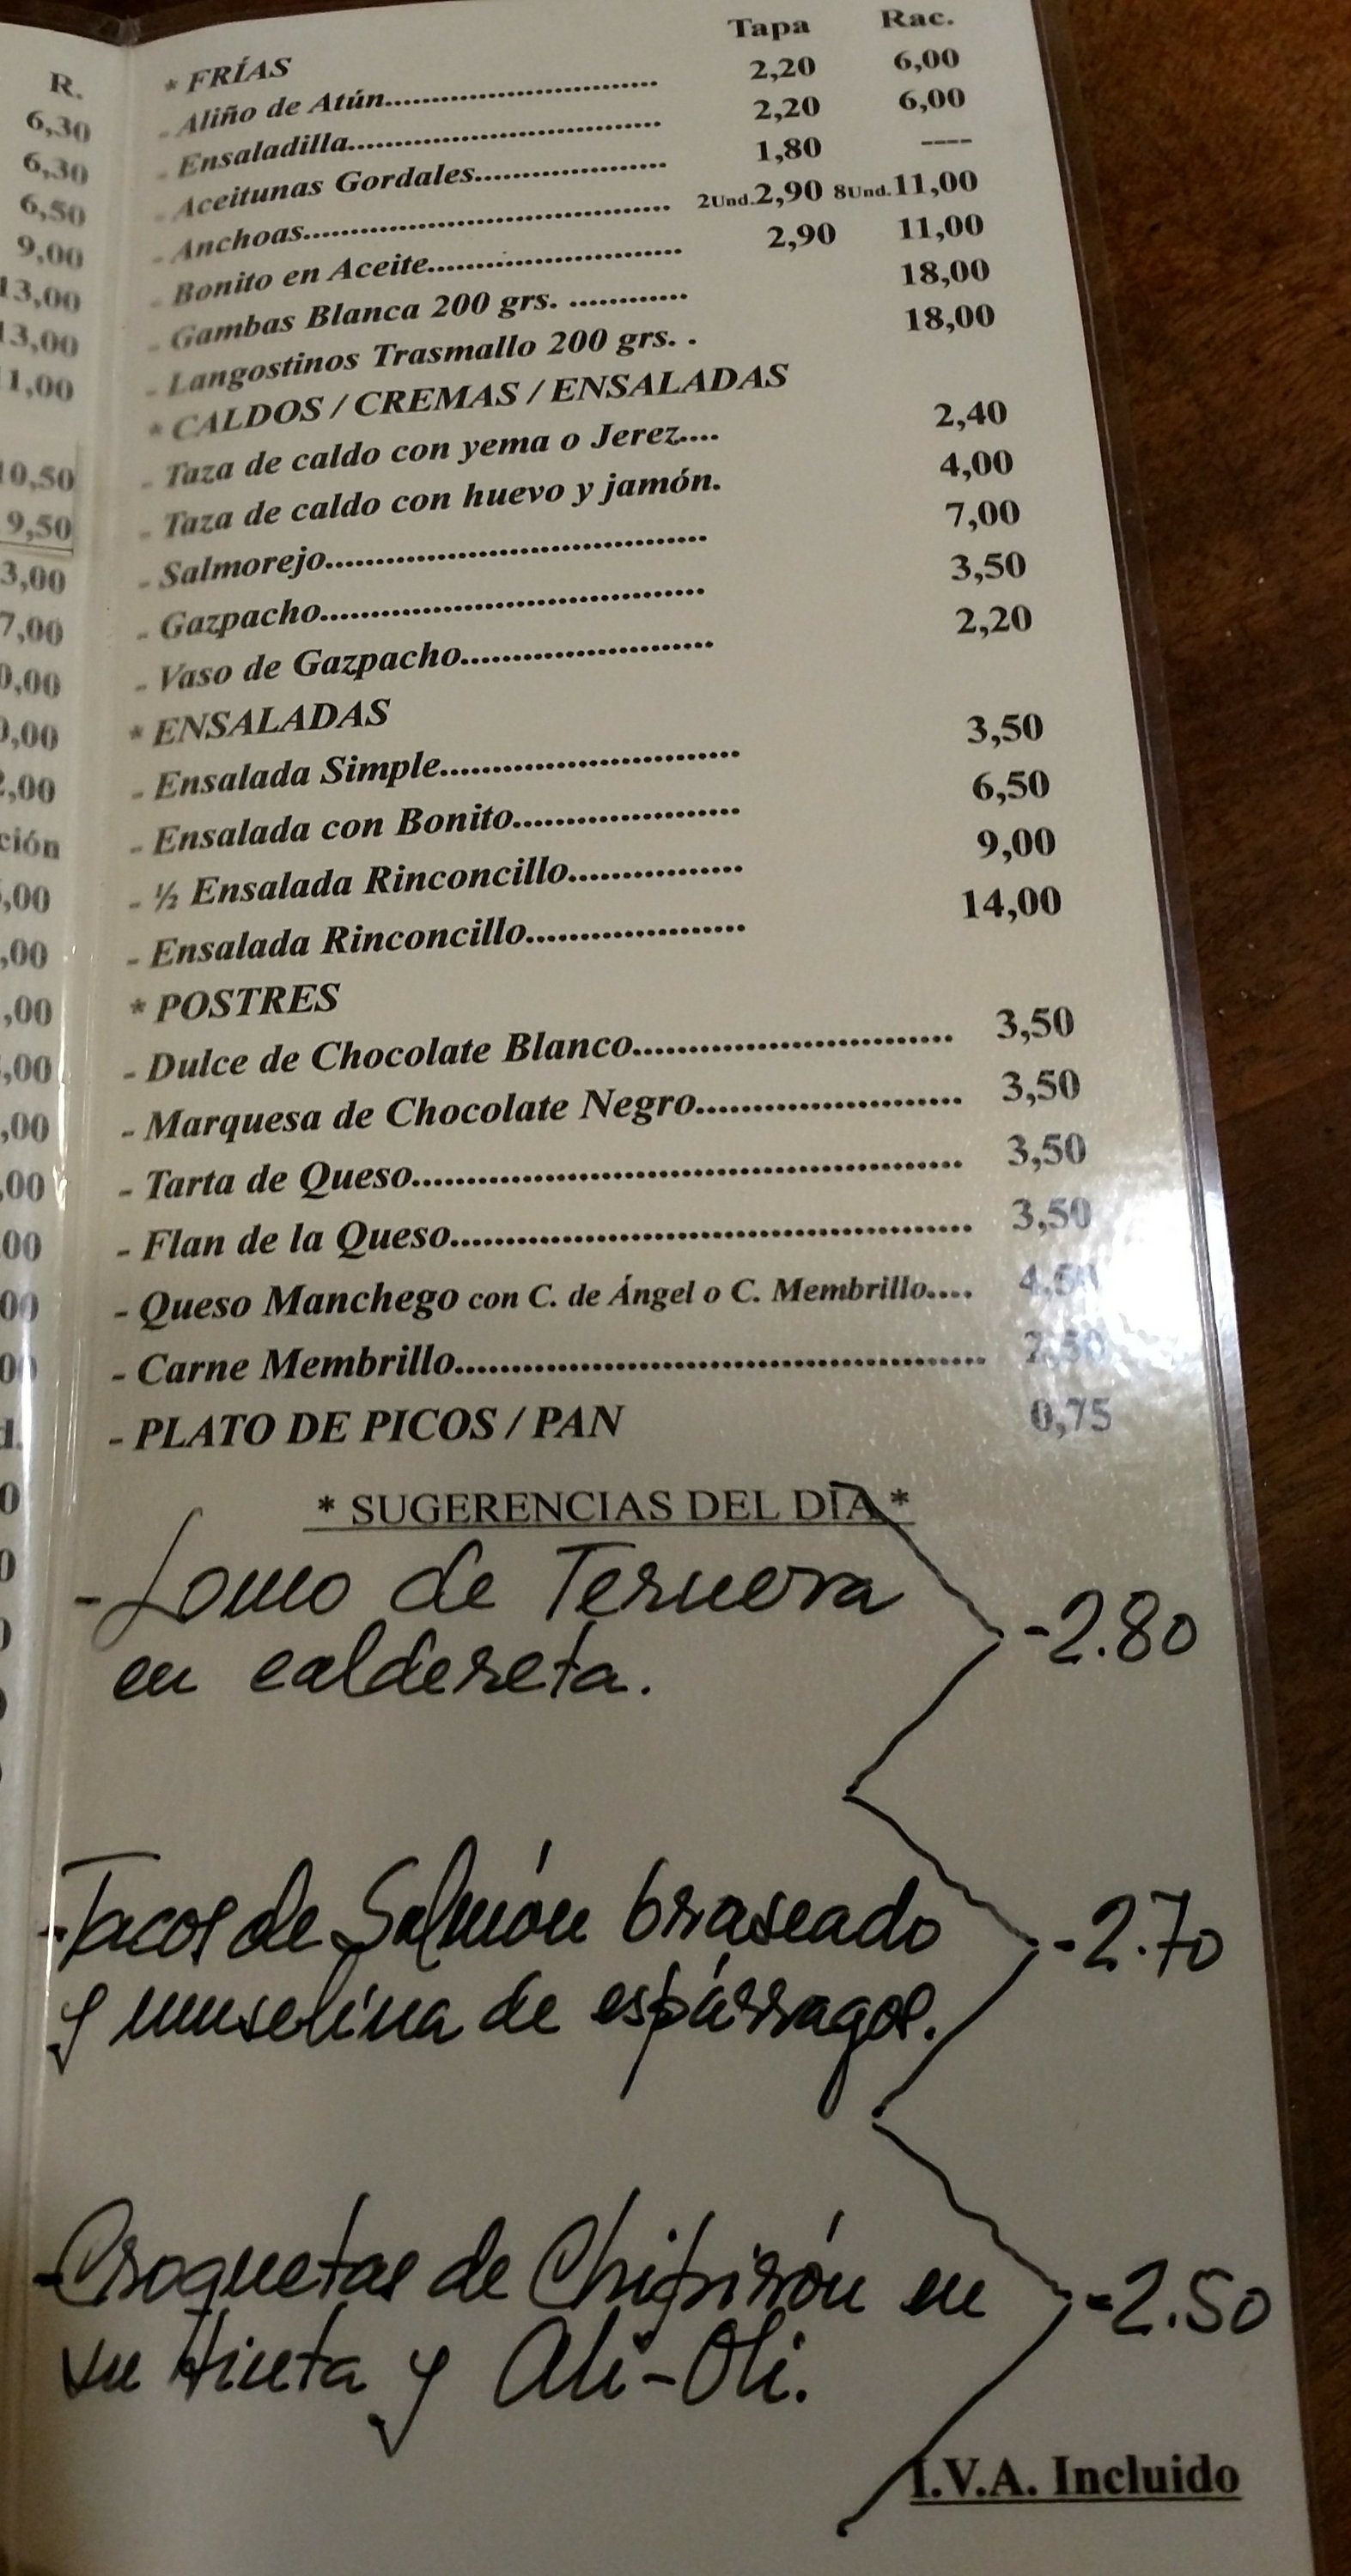 R.
6,30
6,30
6,50
9,00
13,00
13,00
1,00
10,50
9,50
3,00
7,00
0,00
0,00
2,00
ción
,00
,00
,00
,00
,00
,00
00
00
Tapa Rac.
* FRÍAS
- Aliño de Atún............................ 2,20 6,00
- Ensaladilla................................ 2,20 6,00
- Aceitunas Gordales................... 1,80 ----
- Anchoas..................................... 2Und.2,90 8Und.11,00
- Bonito en Aceite......................... 2,90 11,00
- Gambas Blanca 200 grs. ............ 18,00
- Langostinos Trasmallo 200 grs. . 18,00
* CALDOS / CREMAS / ENSALADAS
- Taza de caldo con yema o Jerez.... 2,40
- Taza de caldo con huevo y jamón. 4,00
- Salmorejo..................................... 7,00
- Gazpacho..................................... 3,50
- Vaso de Gazpacho........................ 2,20
* ENSALADAS
- Ensalada Simple............................ 3,50
- Ensalada con Bonito..................... 6,50
- ½ Ensalada Rinconcillo................ 9,00
- Ensalada Rinconcillo.................... 14,00
* POSTRES
- Dulce de Chocolate Blanco............................ 3,50
- Marquesa de Chocolate Negro....................... 3,50
- Tarta de Queso................................................ 3,50
- Flan de la Queso............................................. 3,50
- Queso Manchego con C. de Ángel o C. Membrillo.... 4,50
- Carne Membrillo............................................. 2,50
- PLATO DE PICOS / PAN 0,75
* SUGERENCIAS DEL DÍA *
- Lomo de Ternera -2.80
en caldereta.
- Tacos de Salmón braseado -2.70
y muselina de espárragos.
- Croquetas de Chipirón en -2.50
su tinta y Ali-Oli.
I.V.A. Incluido